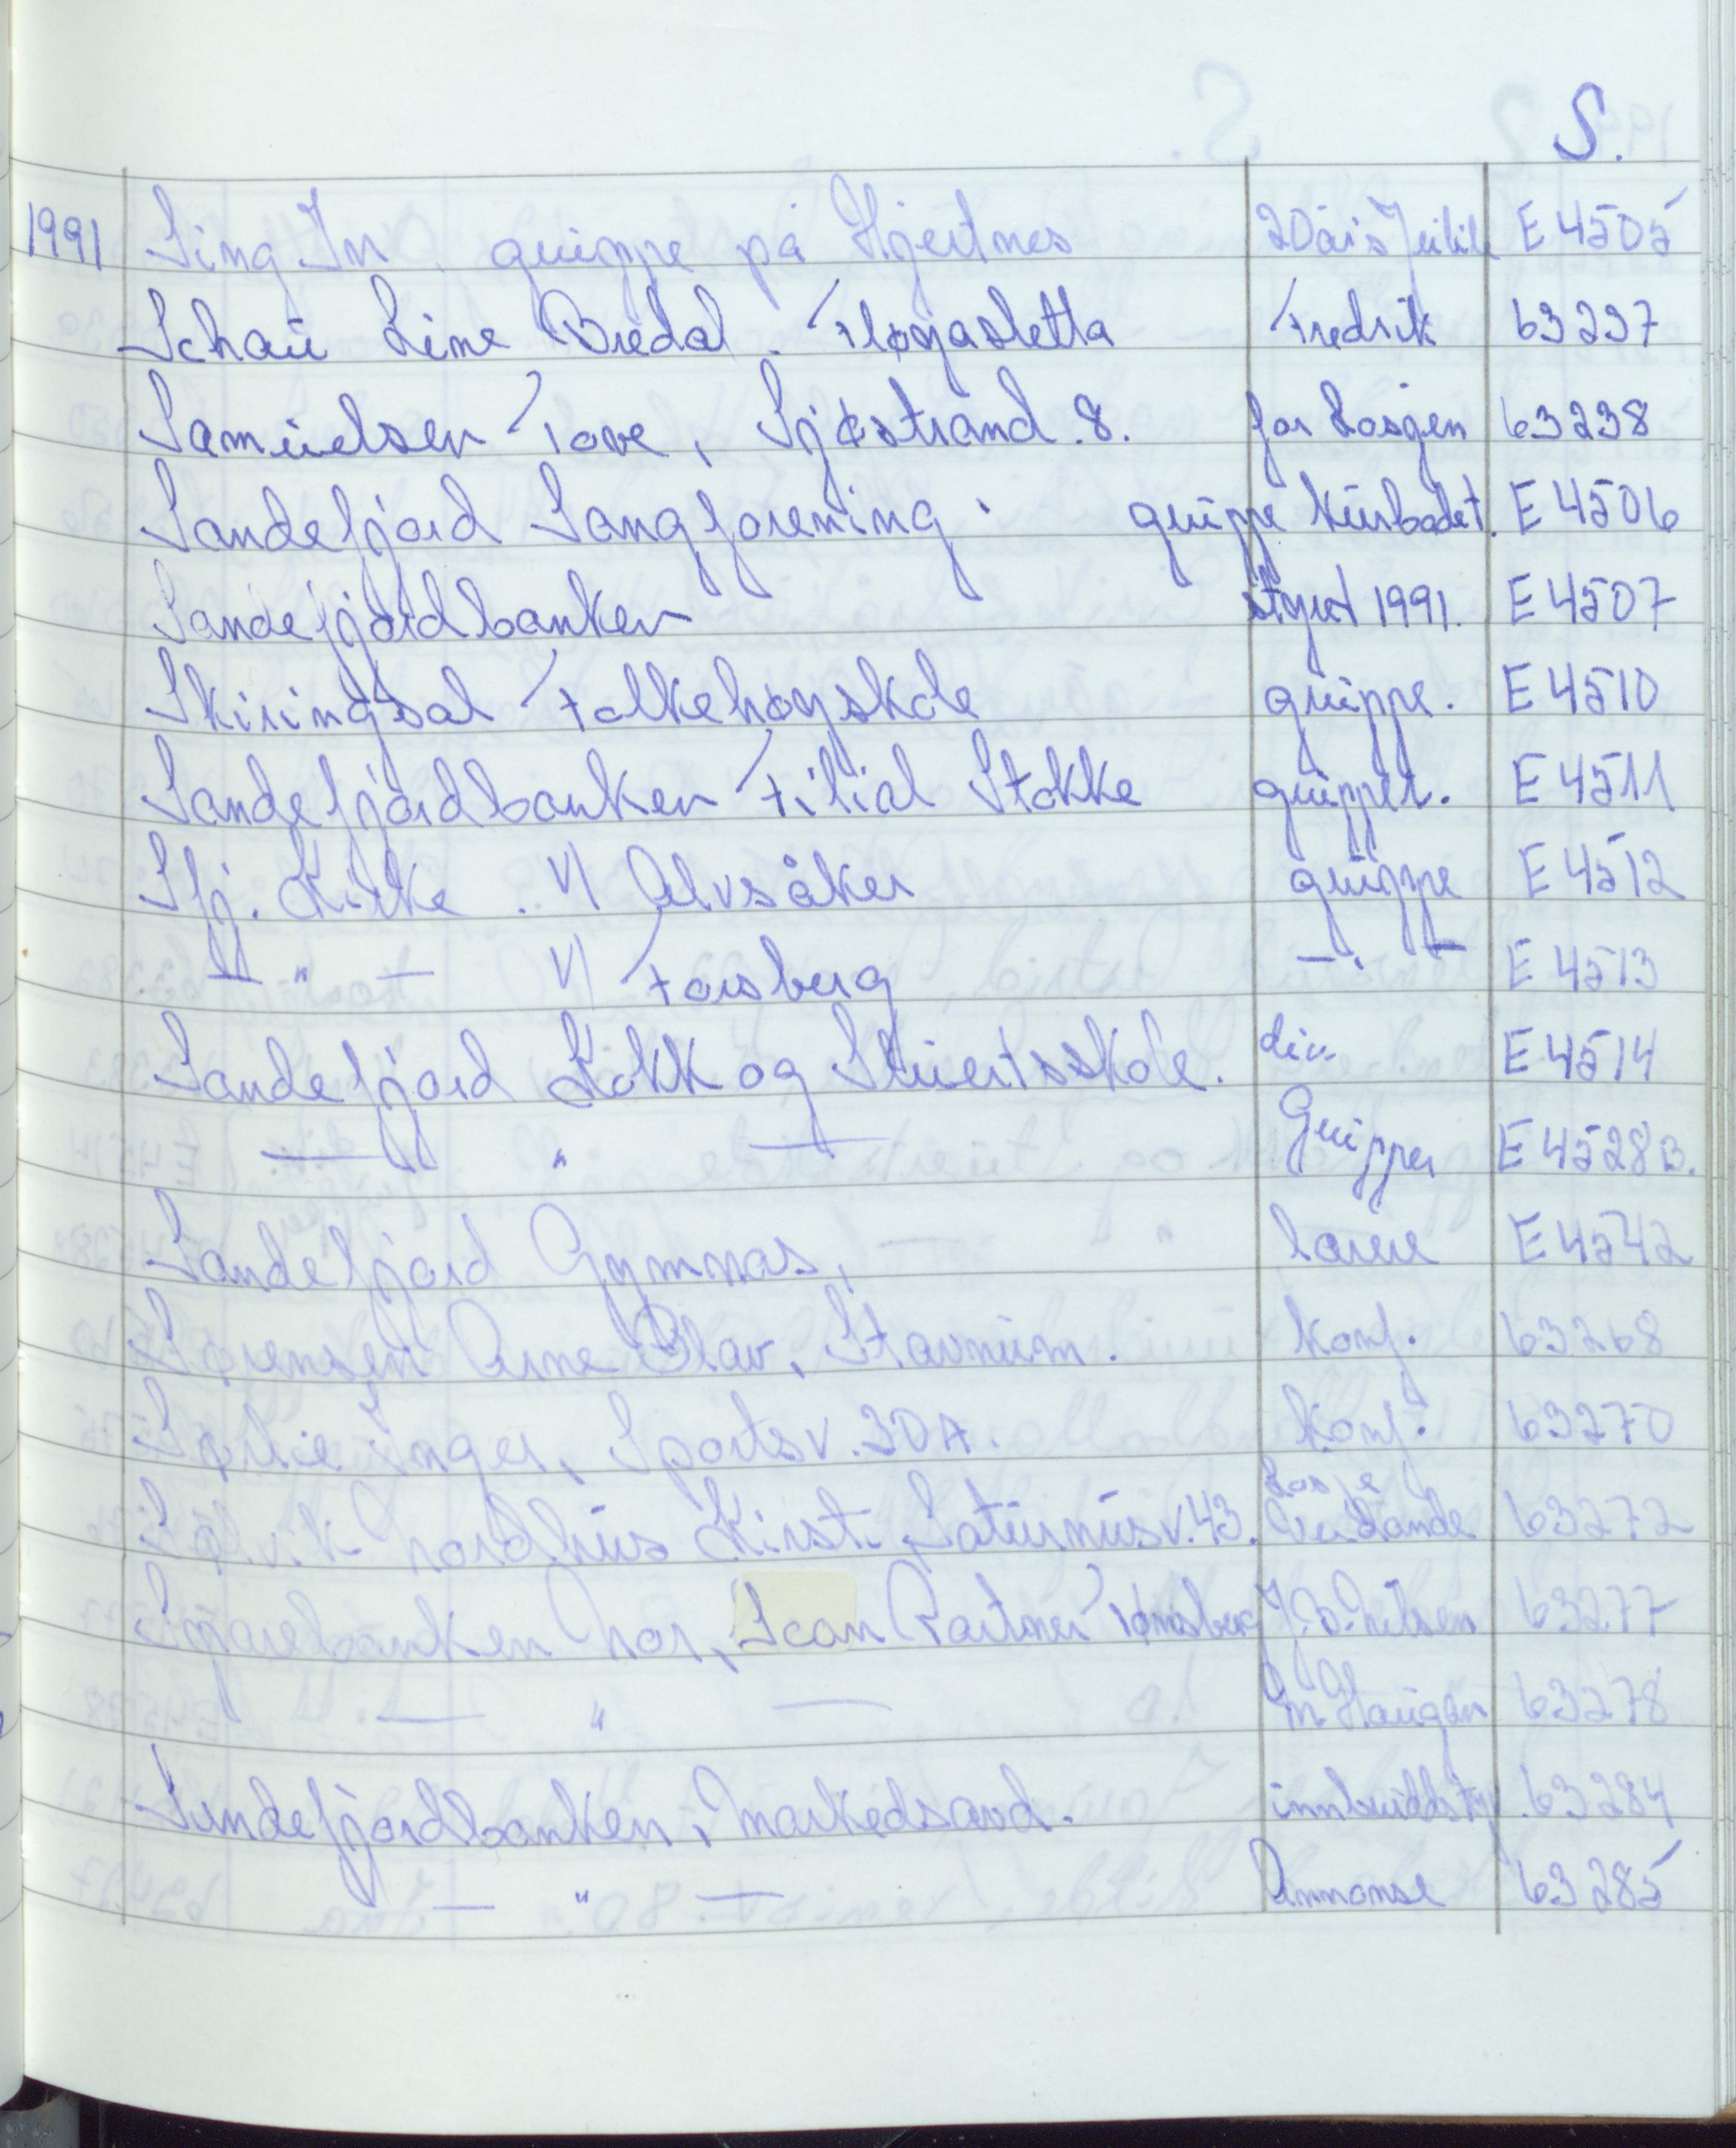 S.
1991 Sing In gruppe på Hjertnes 20års Jubile E 4505
Schau Line Bredal. Fløyasletta Fredrik 63237
Samuelsen Tove, Sjøstrand. 8. for Losjen 63238
Sandefjord Sangforening. gruppe Kurbadet. E 4506
Sandefjordbanken styret 1991. E 4507
Skiringsal Folkehøyskole gruppe. E 4510
Sandefjordbanken Filial Stokke grupper. E 4511
Sfj. Kirke. V/ Alvsåker gruppe E 4512
— " — V/ Forsberg — . — E 4513
Sandefjord Kokk og Stuertsskole. div. E 4514
— " — Grupper E 4528 B.
Sandefjord Gymnas, lærere E 4542
Sørensen Arne Olav, Stavnum. Konf. 63268
Sørlie Inger, Sportsv. 30A. Konf. 63270
Nordhus Kirsti Saturnusv. 43. 63272
Sparebanken Nor, Scan Partner Tønsberg J.O. Nilsen 63277
— " — M Haugen 63278
Sandefjordbanken, Markedsavd. 63284
— " — Annonse 63285